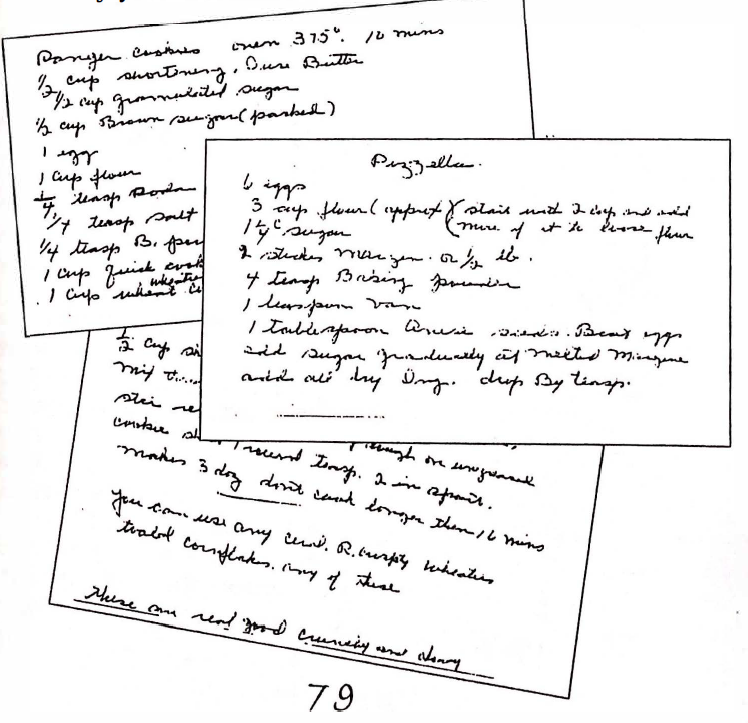 Ranger cookies oven 375°. 10 mins
1/2 cup shortening. I use Butter
1/2 cup granulated sugar
1/2 cup Brown sugar (packed)
1 egg
1 cup flour
1/4 teasp Soda
1/4 teasp salt
1/4 teasp B. pow
1 cup quick cook
wheaties
1 cup wheat
Pizzella.
6 eggs
3 cup flour (approx) (start with 2 cup and add
1 1/4 c sugar (more if it is loose flour
2 sticks Margen. or 1/2 lb.
4 teasp Baking powder
1 teaspoon Van
1 tablespoon Anise seeds. Beat eggs
add sugar graduately
 melted Margine
add all dry Ing. drop By teasp.
1/2 cup
Mix
stir
on ungreased
cookie round teasp. 2 in apart.
Makes 3 doz don't cook longer then 10 mins
You can use any cereal. R. crispy Wheaties
total cornflakes. any of these
these are real good crunchy and
79